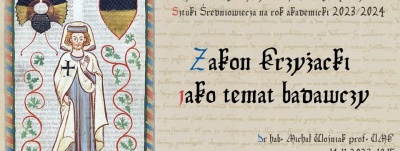 Sztuki Średniowiecza na rok akademicki 2023/2024
Zakon Krzyżacki
jako temat badawczy
Dr hab. Michał Woźniak prof. UMK